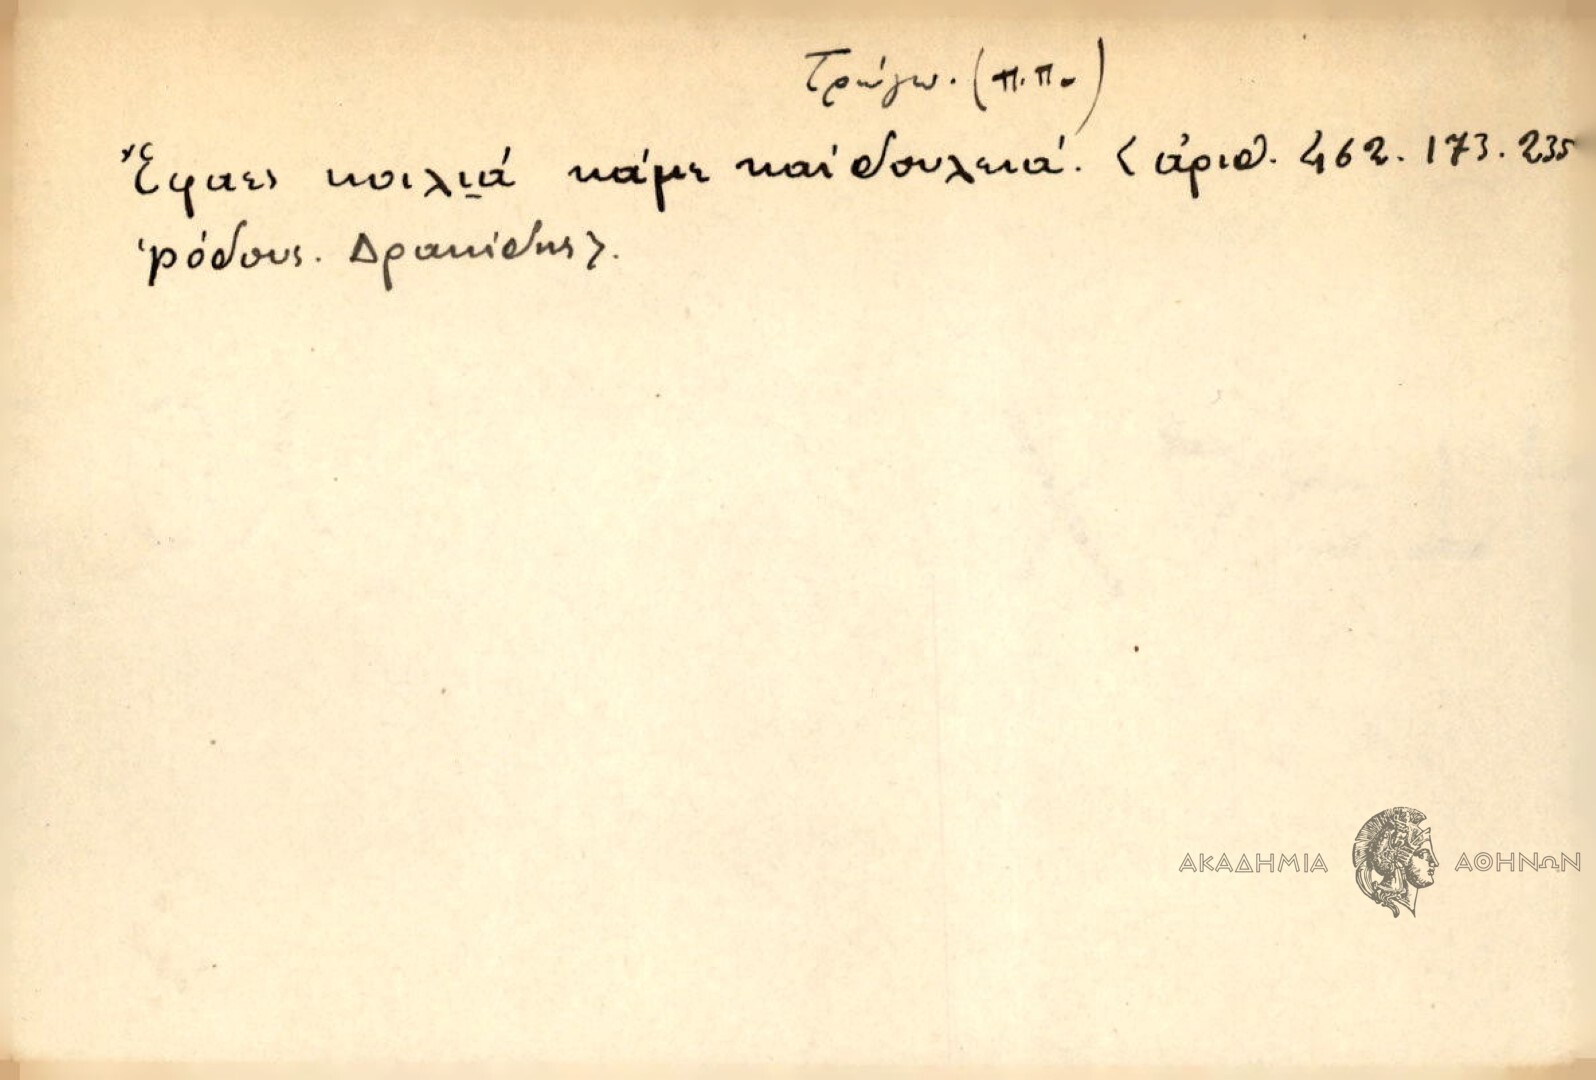 Τρώγω. (π.π.)
Ἔφαες κοιλιά κάμε καί δουλειά. < ἀριθ. 462. 173. 235
Ῥόδους. Δρακίδης>.
ΑΚΑΔΗΜΙΑ ΑΘΗΝΩΝ